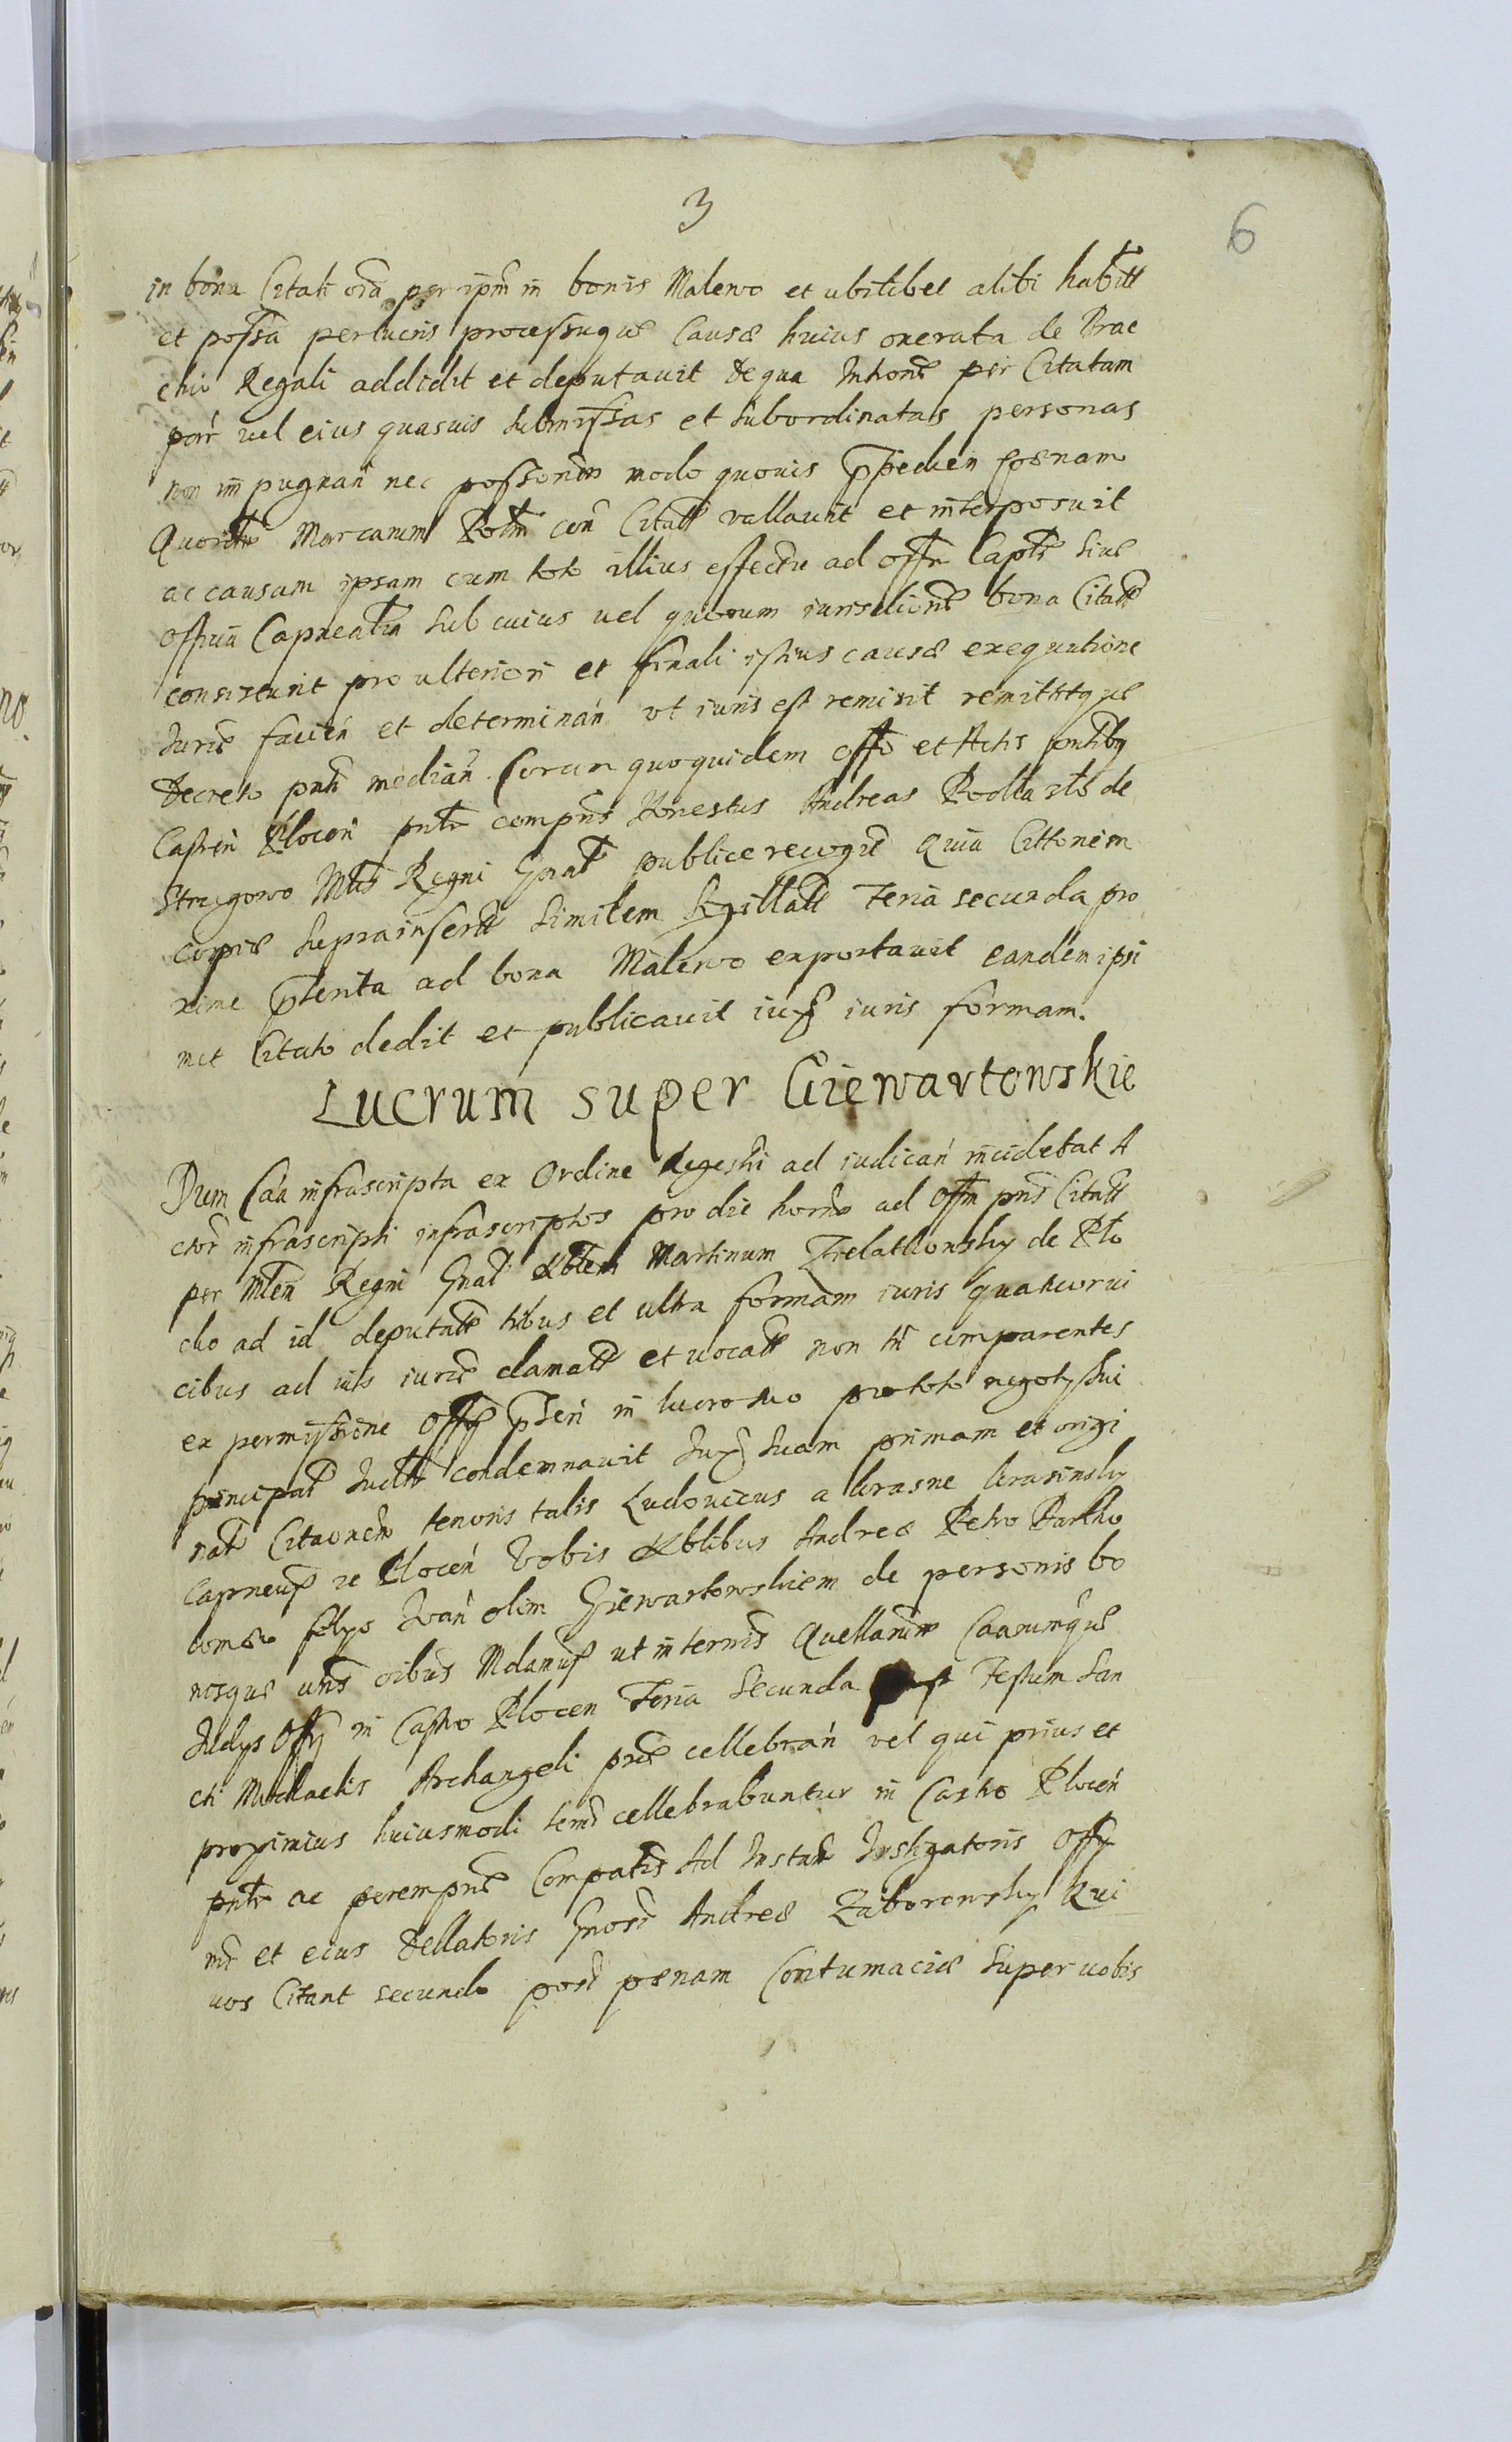 3
6
in bona Citati oīa per ipm̄ in bonis Malewo et ubilibet alibi habitt
et possa per lucris processuque causæ huius onerata de Brac
chio Regali addidit et deputavit de qua Introne per Citatam
parē vel eius quasvis submissas et subordinatas personas
non impugnań nec possoriem modo quovis p̄pedien pœnam
Marcarum Poltm coń Citatt vallavit et interposuit
ac causam ipsam cum toto illius effectu ad off̄m Capt̄i sive
Off̄icia Capnealia sub cuius vel quorum iurisdicione bona Citatt
consisterint pro ulteriori et finali istius causæ exequutione
Iuris facień et determinań ut iuris est remisit remittitque
Decreto pnti mediań Coram quoquidem off̄o et Actis pntibus
Castreń Plocen̄ pntr compns Honestus Andreas de
Strzegowo Mls Regni Gnal publice recogt Quia Citt̄onem
copiæ suprainsertt similem Sigillatt Feria secunda pro
xime p̄terita ad bona Malewo exportavit eandem ipsi
met Citato dedit et publicavit iux iuris formam.
Lucrum super Giewartowskie
Dum Cāa infrascripta ex Ordine Regestri ad iudicań incidebat A
ctor infrascripti infrascriptos pro die hodrna ad Off̄m pns Citatt
per Mlēm Regni Gnal Martinum de Plo
cko ad id deputatt tribus et ultra formam iuris quatuor vi
cibus ad iuris clamatt et vocatt non tn̄ comparentes
ex permissione Off̄y p̄sen̄ in lucro suo pro toto negoty sui
principali condemnavit Iux suam primam et origi
nale Citaonem tenoris talis Ludovicus a Krasne Krasinsky
Capneus ze Plocen̄ Vobis Nblibus Andreæ Petro
filys olim Giewartowskiem de personis bo
nisque vris oibus Mdamus ut in termis Querellarum Caarumque
Iudys Off̄y in Castro Plocen̄ Feria Secunda post Festum San
cti Michaelis Archangeli cellebrań vel qui prius et
proximius huiusmodi temi cellebrabuntur in Castro Plocen̄
pntr ac perempne Compatis Ad Instań Instigatoris Off̄y
nri et eius Dellatoris Gnosi Andreæ Zaborowsky Qui
vos Citant secundo post pœnam Contumaciæ super vobis